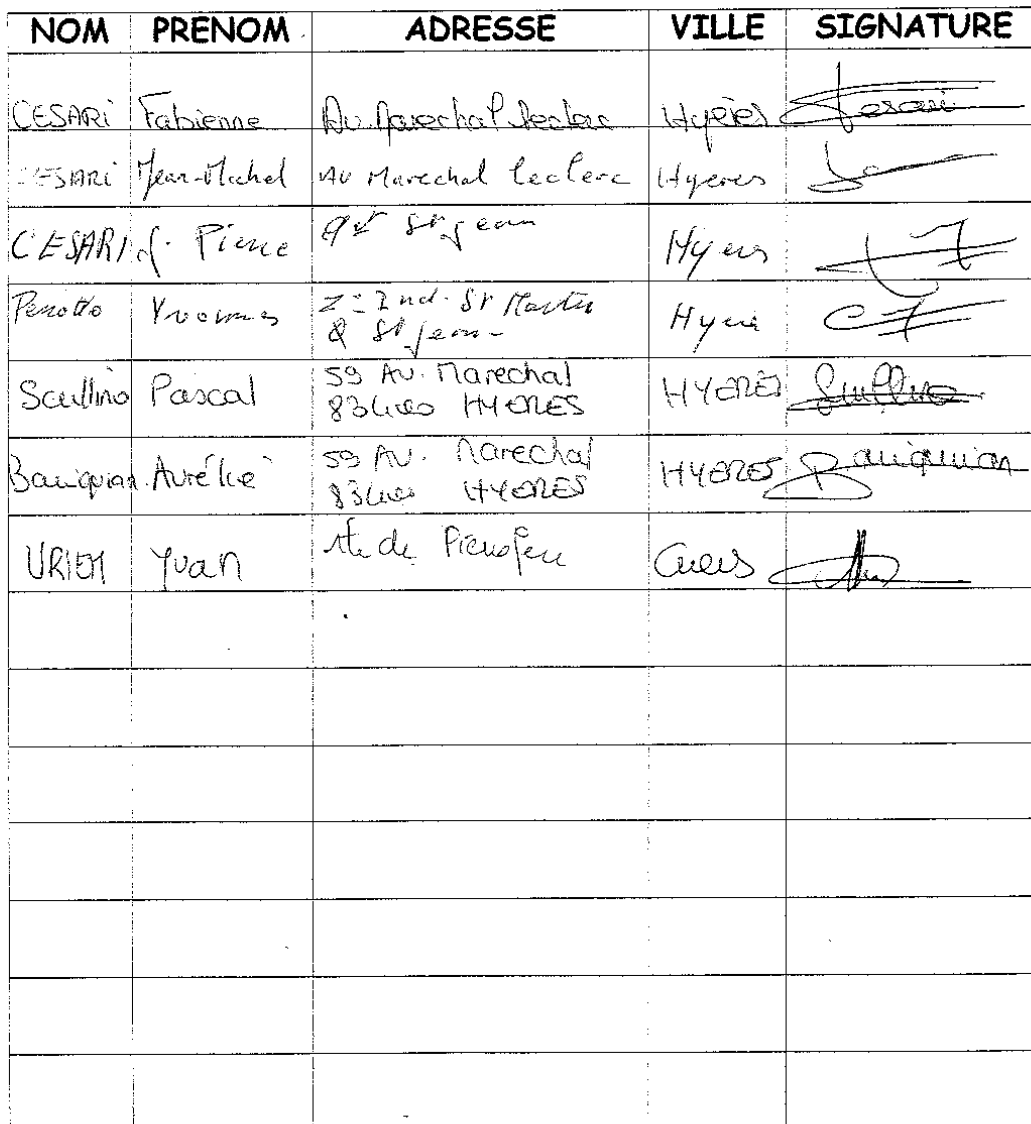 NOM PRENOM ADRESSE VILLE SIGNATURE
CESARI Fabienne Av. Marechal Leclerc Hyères Cesari
CESARI Jean-Michel Av Marechal Leclerc Hyeres
CESARI J. Pierre St Jean Hyeres
Perotto Z Ind. St Martin
St Jean Hyere
Scullino Pascal 59 Av. Marechal
83400 HYERES HYERES Scullino
Bauiquian Aurélie 59 Av. Marechal
83400 HYERES HYERES Bauiquian
Yvan rte de Pierrefeu Cuers